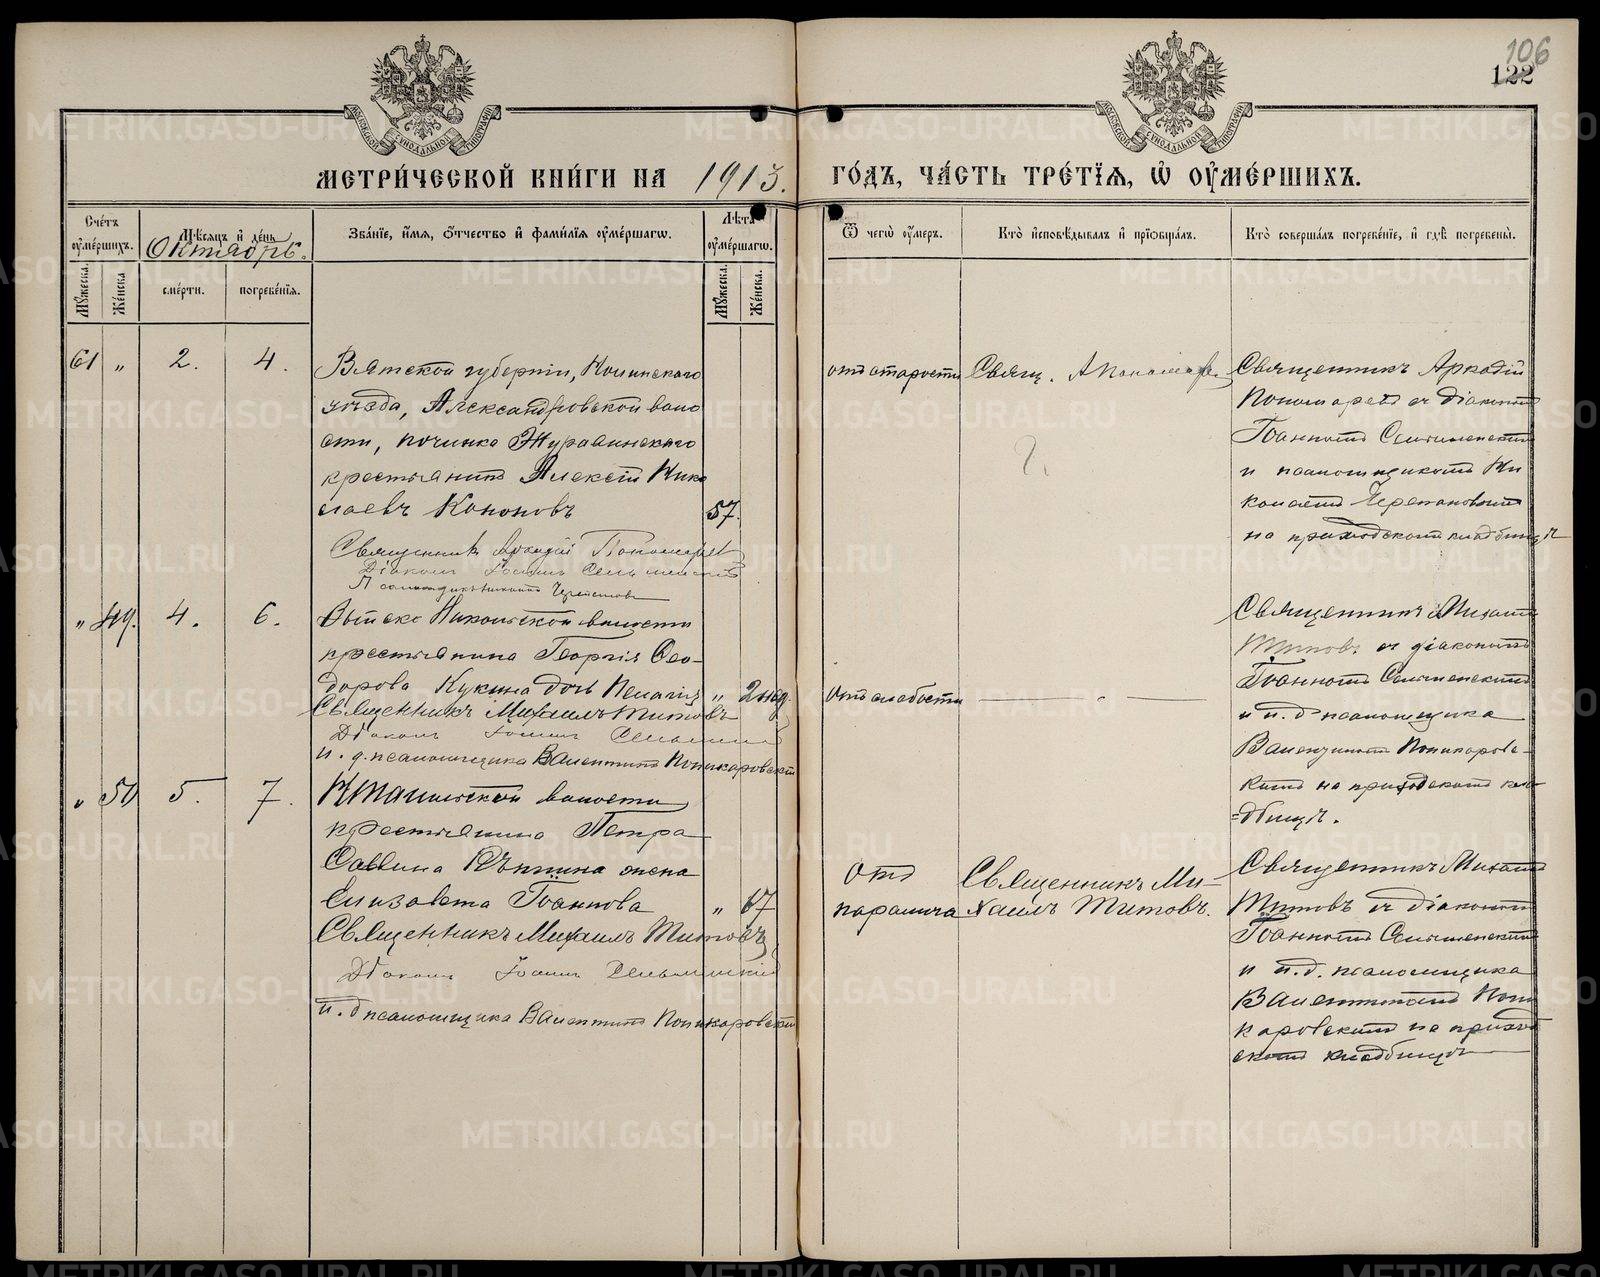 106
122
МЕТРИ́ЧЕСКОЙ КНИ́ГИ НА 1913. ГО́ДЪ, ЧА́СТЬ ТРЕ́ТЇЯ, Ѡ҆ ОУ҆МЕ́РШИХЪ.
Сче́тъ оу҆ме́ршихъ.
Мꙋ́жеска.
Же́нска
Мѣ́сѧцъ и҆ де́нь
Октябрь.
сме́рти.
погребе́нїѧ.
Зва́нїе, и҆́мѧ, ѻ҆́тчество и҆ фами́лїѧ оу҆ме́ршагѡ.
Лѣ́та оу҆ме́ршагѡ.
Мꙋ́жеска.
Же́нска.
Ѿ чегѡ̀ оу҆́меръ.
Кто̀ и҆сповѣ́дывалъ и҆ прїѡбща́лъ.
Кто̀ соверша́лъ погребе́нїе, и҆ гдѣ̀ погребены̀.
61 " 2. 4.
Вятской губернiи,
уѣзда, Александровской воло
сти, починка Журавлинскаго
крестьянинъ Алексѣй Нико
лаевъ Кононовъ
57.
Священникъ Аркадiй Пономаревъ
Дiаконъ Iоаннъ Сельменскiй
Псаломщикъ Николай Черепановъ
отъ старости
Свящ. А Пономаревъ
?.
Священникъ Аркадiй
Пономаревъ съ дiакономъ
Iоанномъ Сельменскимъ
и псаломщикомъ Ни
колаемъ Черепановымъ
на приходскомъ кладбищѣ
" 49. 4. 6.
Никольской волости
крестьянина Георгiя Ѳео-
дорова Кукина дочь Пелагiя
" 2 нед.
Священникъ Михаилъ Титовъ
Дiаконъ Iоаннъ Сельменскiй
и. д. псаломщика Валентинъ Поликаровскiй
Отъ слабости
— " —
Священникъ Михаилъ
Титовъ съ дiакономъ
Iоанномъ Сельменскимъ
и и. д псаломщика
Валентиномъ Поликаровс-
кимъ на приходскомъ кла-
=дбищѣ.
" 50 5. 7.
волости
крестьянина Петра
Саввина жена
Елизавета Iоаннова
" 67
Священникъ Михаилъ Титовъ
Дiаконъ Iоаннъ Сельменскiй
и. д псаломщика Валентинъ Поликаровскiй
Отъ
паралича
Священникъ Ми-
хаилъ Титовъ.
Священникъ Михаилъ
Титовъ съ дiакономъ
Iоанномъ Сельменскимъ
и и. д. псаломщика
Валентиномъ Поли
каровскимъ на приход
скомъ кладбищѣ
METRIKI.GASO-URAL.RU